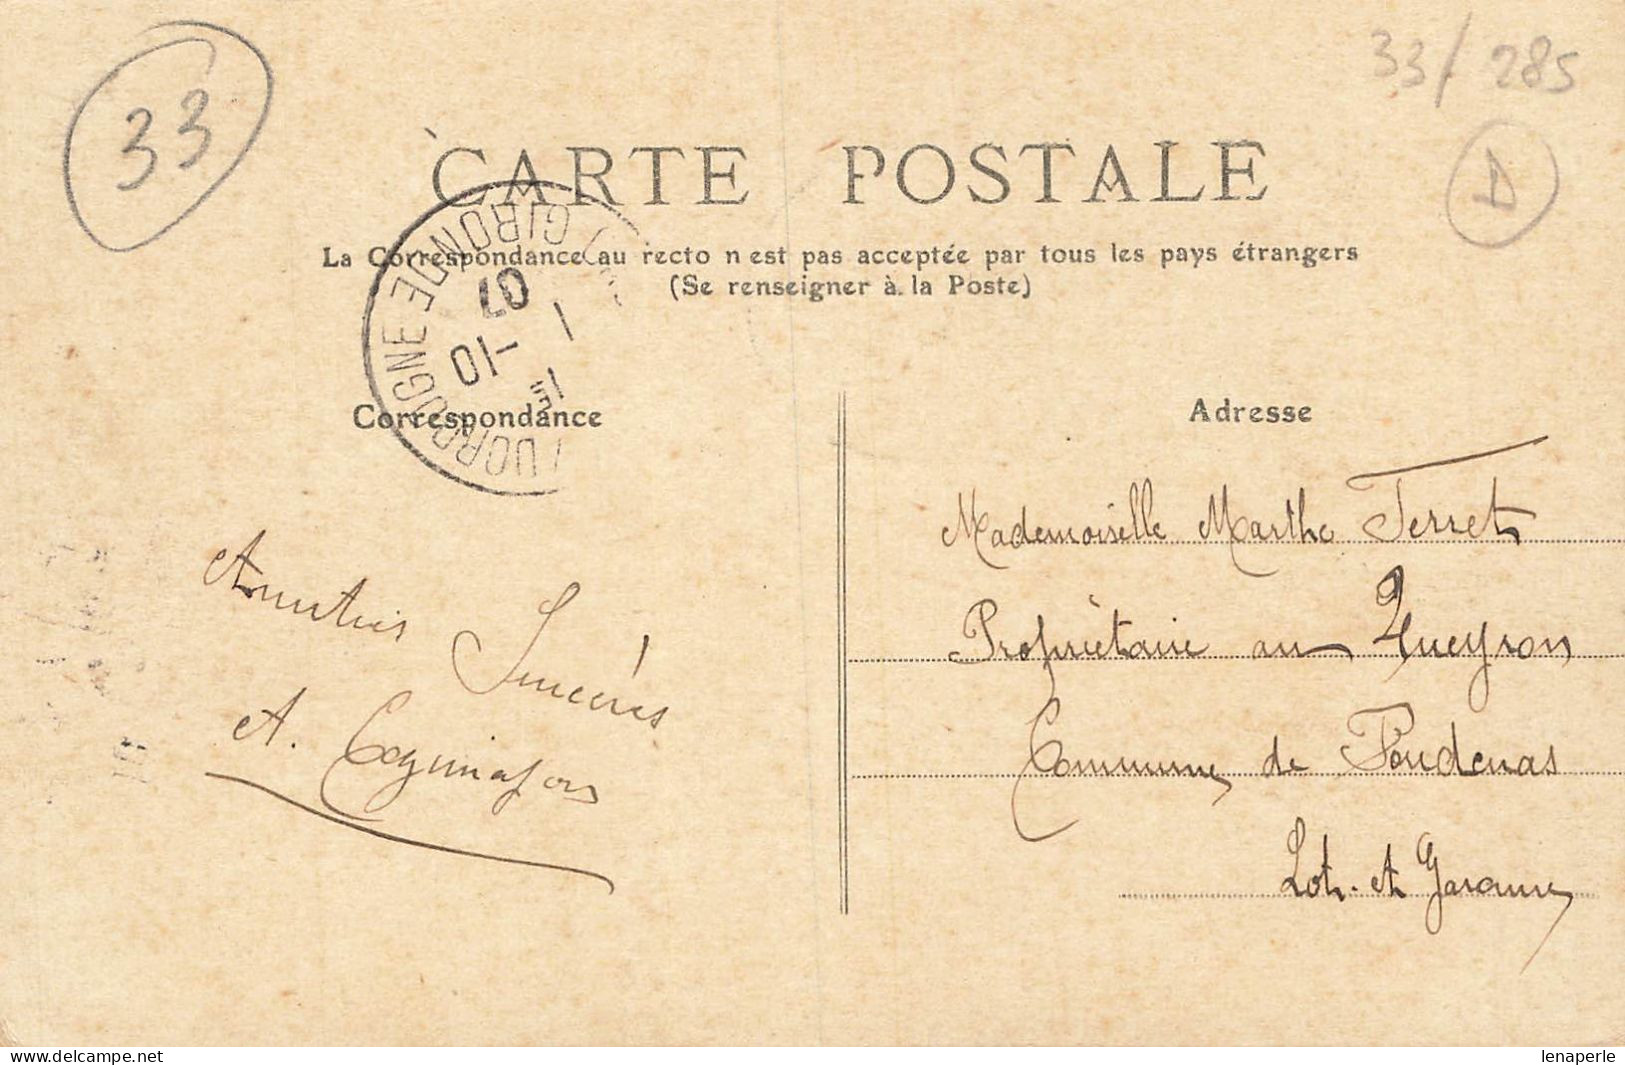 33
33/285
D
CARTE POSTALE
La Correspondance au recto n est pas acceptée par tous les pays étrangers
(Se renseigner à la Poste)
GIRONDE
07
1-10
Correspondance
Adresse
Amitiés Sincères
A.
Mademoiselle Marthe Ferret
Propriètaire au Queyron
Commune de Poudenas
Lot et Garonne
www.delcampe.net
lenaperle